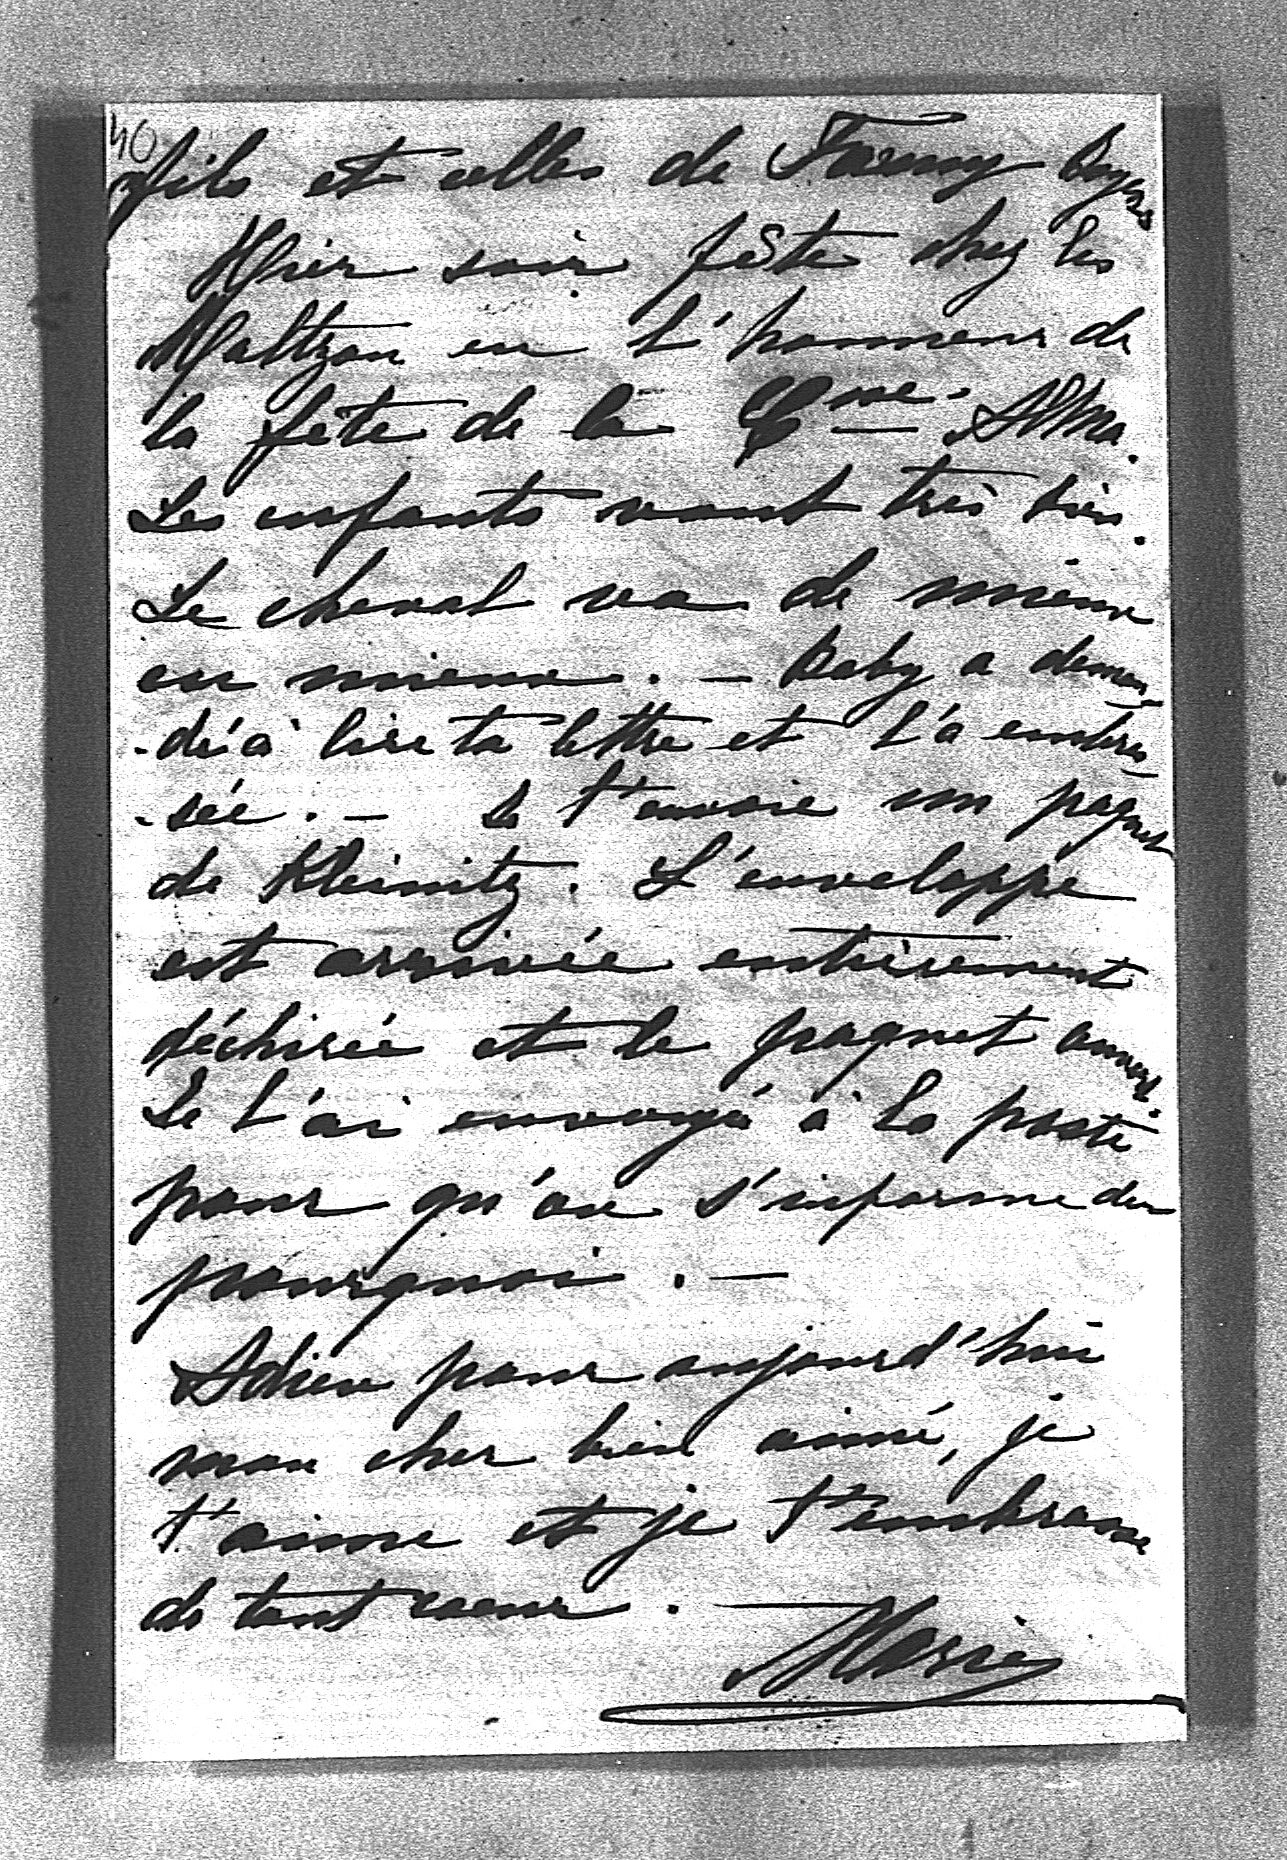 40
fils et celles de Fanny
Hier soir fête chez les
Maltzan en l'honneur de
la fête de la Ctsse. Alma.
Les enfants vont très bien.
Le cheval va de mieux
en mieux. — Baby a deman-
-dé à lire ta lettre et l'a embras-
-sée. — Je t'envoie un paquet
de Kleinitz. L'enveloppe
est arrivée entièrement
déchirée et le paquet ouvert.
Je l'ai envoyé à la poste
pour qu'on s'informe du
pourquoi. —
Adieu pour aujourd'hui
mon cher bien aimé, je
t'aime et je t'embrasse
de tout coeur. —
Marie